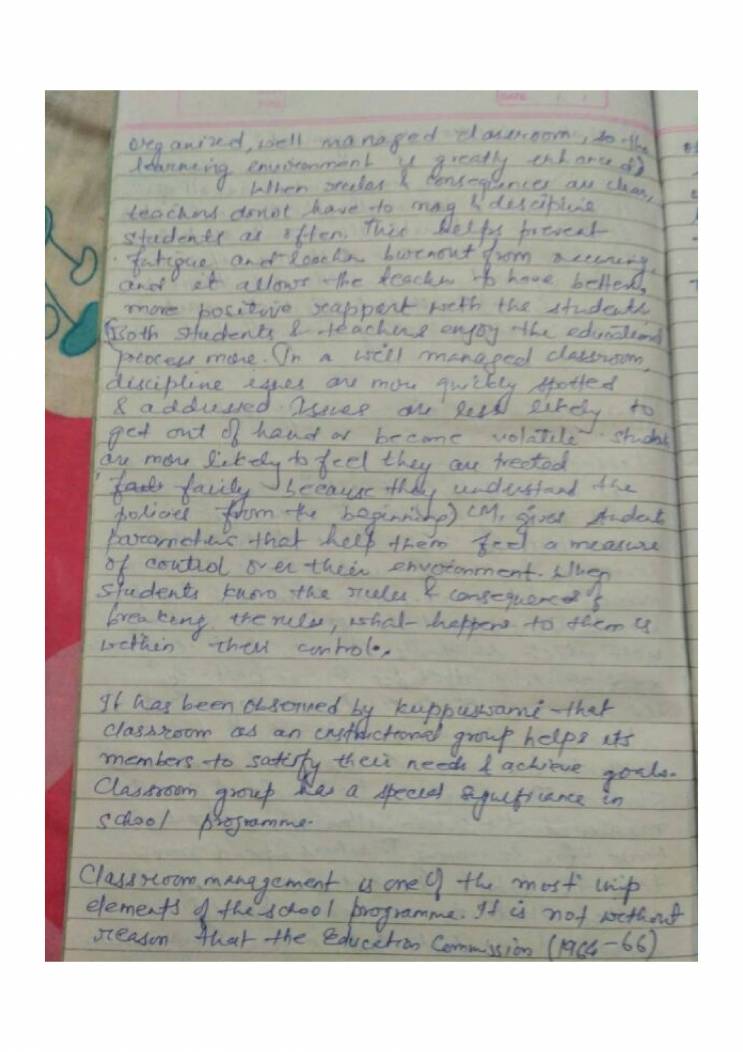 DATE
organized, well managed classroom, so the
learning environment is greatly enhanced)
When rules & consequences are clear,
teachers donot have to nag & descipline
students as often. This helps prevent
fatigue and teacher burnout from occuring,
and it allows the teacher to have better,
more positive rapport with the students
(Both students & teachers enjoy the educational
process more. In a well managed classroom,
discipline issues are more quickly spotted
& addressed. Issues are less likely to
get out of hand or become volatile. Student
are more likely to feel they are treated
fairly because they understand the
policies from the beginning) CM, gives student
parameters that help them feel a measure
of control over their environment. When
students know the rules & consequences of
breaking the rules, what happens to them is
within their control.
It has been observed by kuppuswami that
classroom as an instructional group helps its
members to satisfy their needs & achieve goals.
Classroom group has a special significance in
school programme.
Classroom management is one of the most imp
elements of the school programme. It is not without
reason that the Education Commission (1964-66)